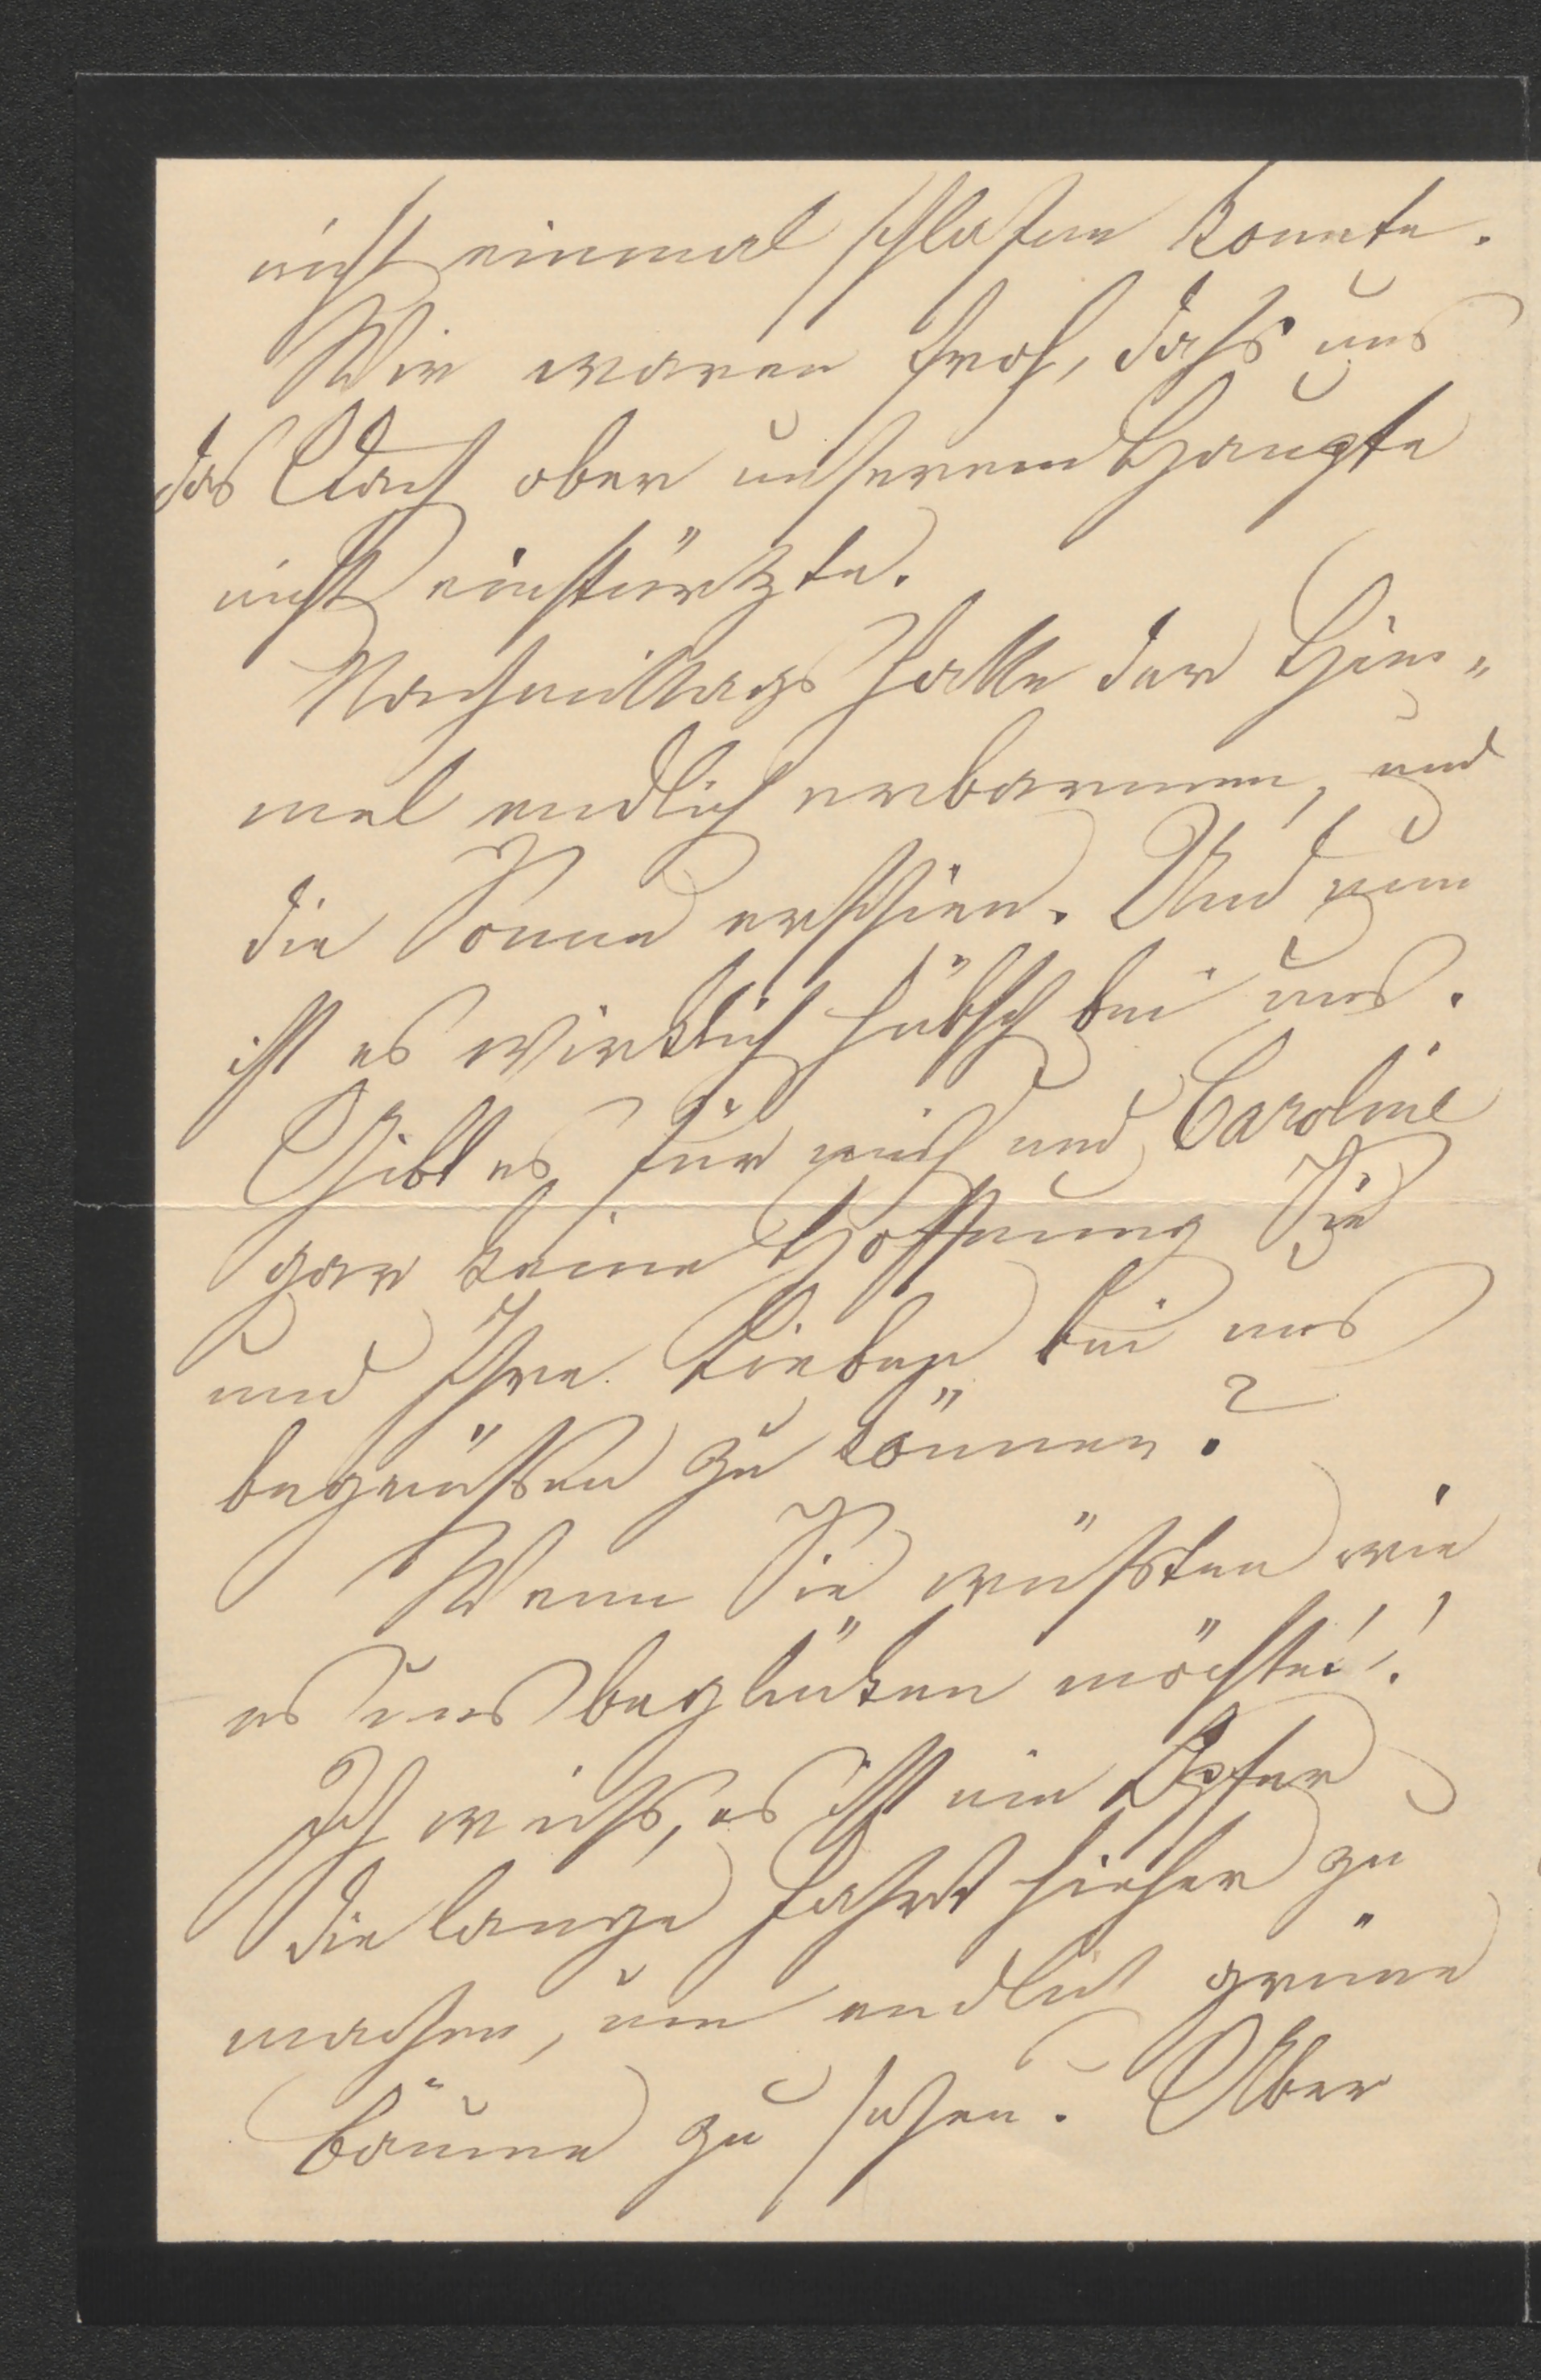 nicht einmal schlafen konnte.
Wir waren froh, dass uns
das Dach ober unserem Haupte
nicht einstürtzte.
Nachmittags hatte der Him„
mel endlich erbarmen, und
die Sonne erschien. Und nun
ist es wirklich hübsch bei uns.
Gibt es für mich und Caroline
gar keine Hoffnung Sie
und Ihre Lieben bei uns
begrüssen zu können?
Wenn Sie wüssten wie
es uns beglücken möchte!!
Ich weiss, es ist ein Opfer
die lange Fahrt hieher zu
machen, um endlich grüne
Bäume zu sehen. Aber